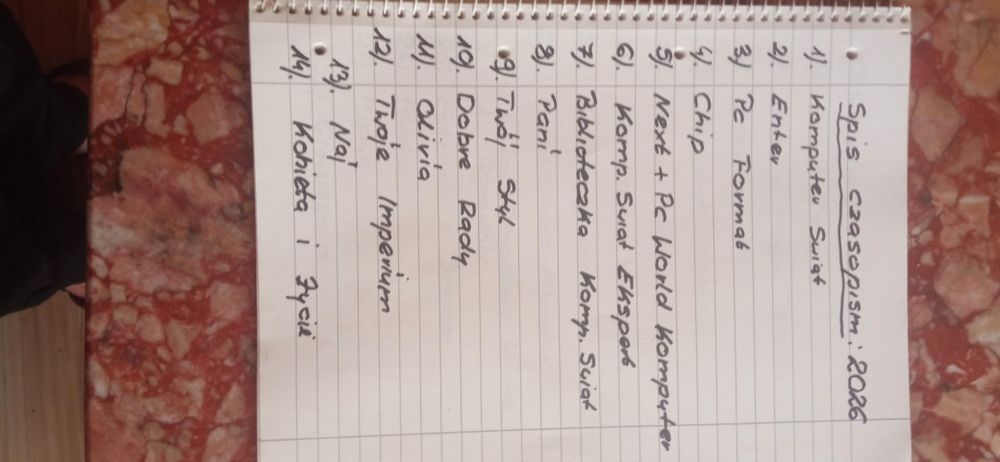 Spis czasopism: 2026
1). Komputer Świat
2) Enter
3) Pc Format
4). Chip
5). Next + Pc World Komputer
6). Komp. Świat Ekspert
7). Biblioteczka Komp. Świat
8). Pani
9). Twój Styl
10). Dobre Rady
11). Olivia
12). Twoje Imperium
13). Naj
14). Kobieta i Życie